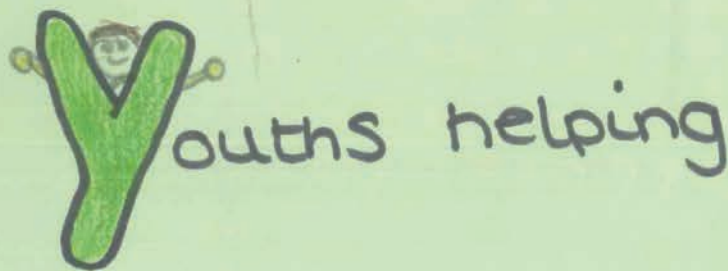 Youths helping